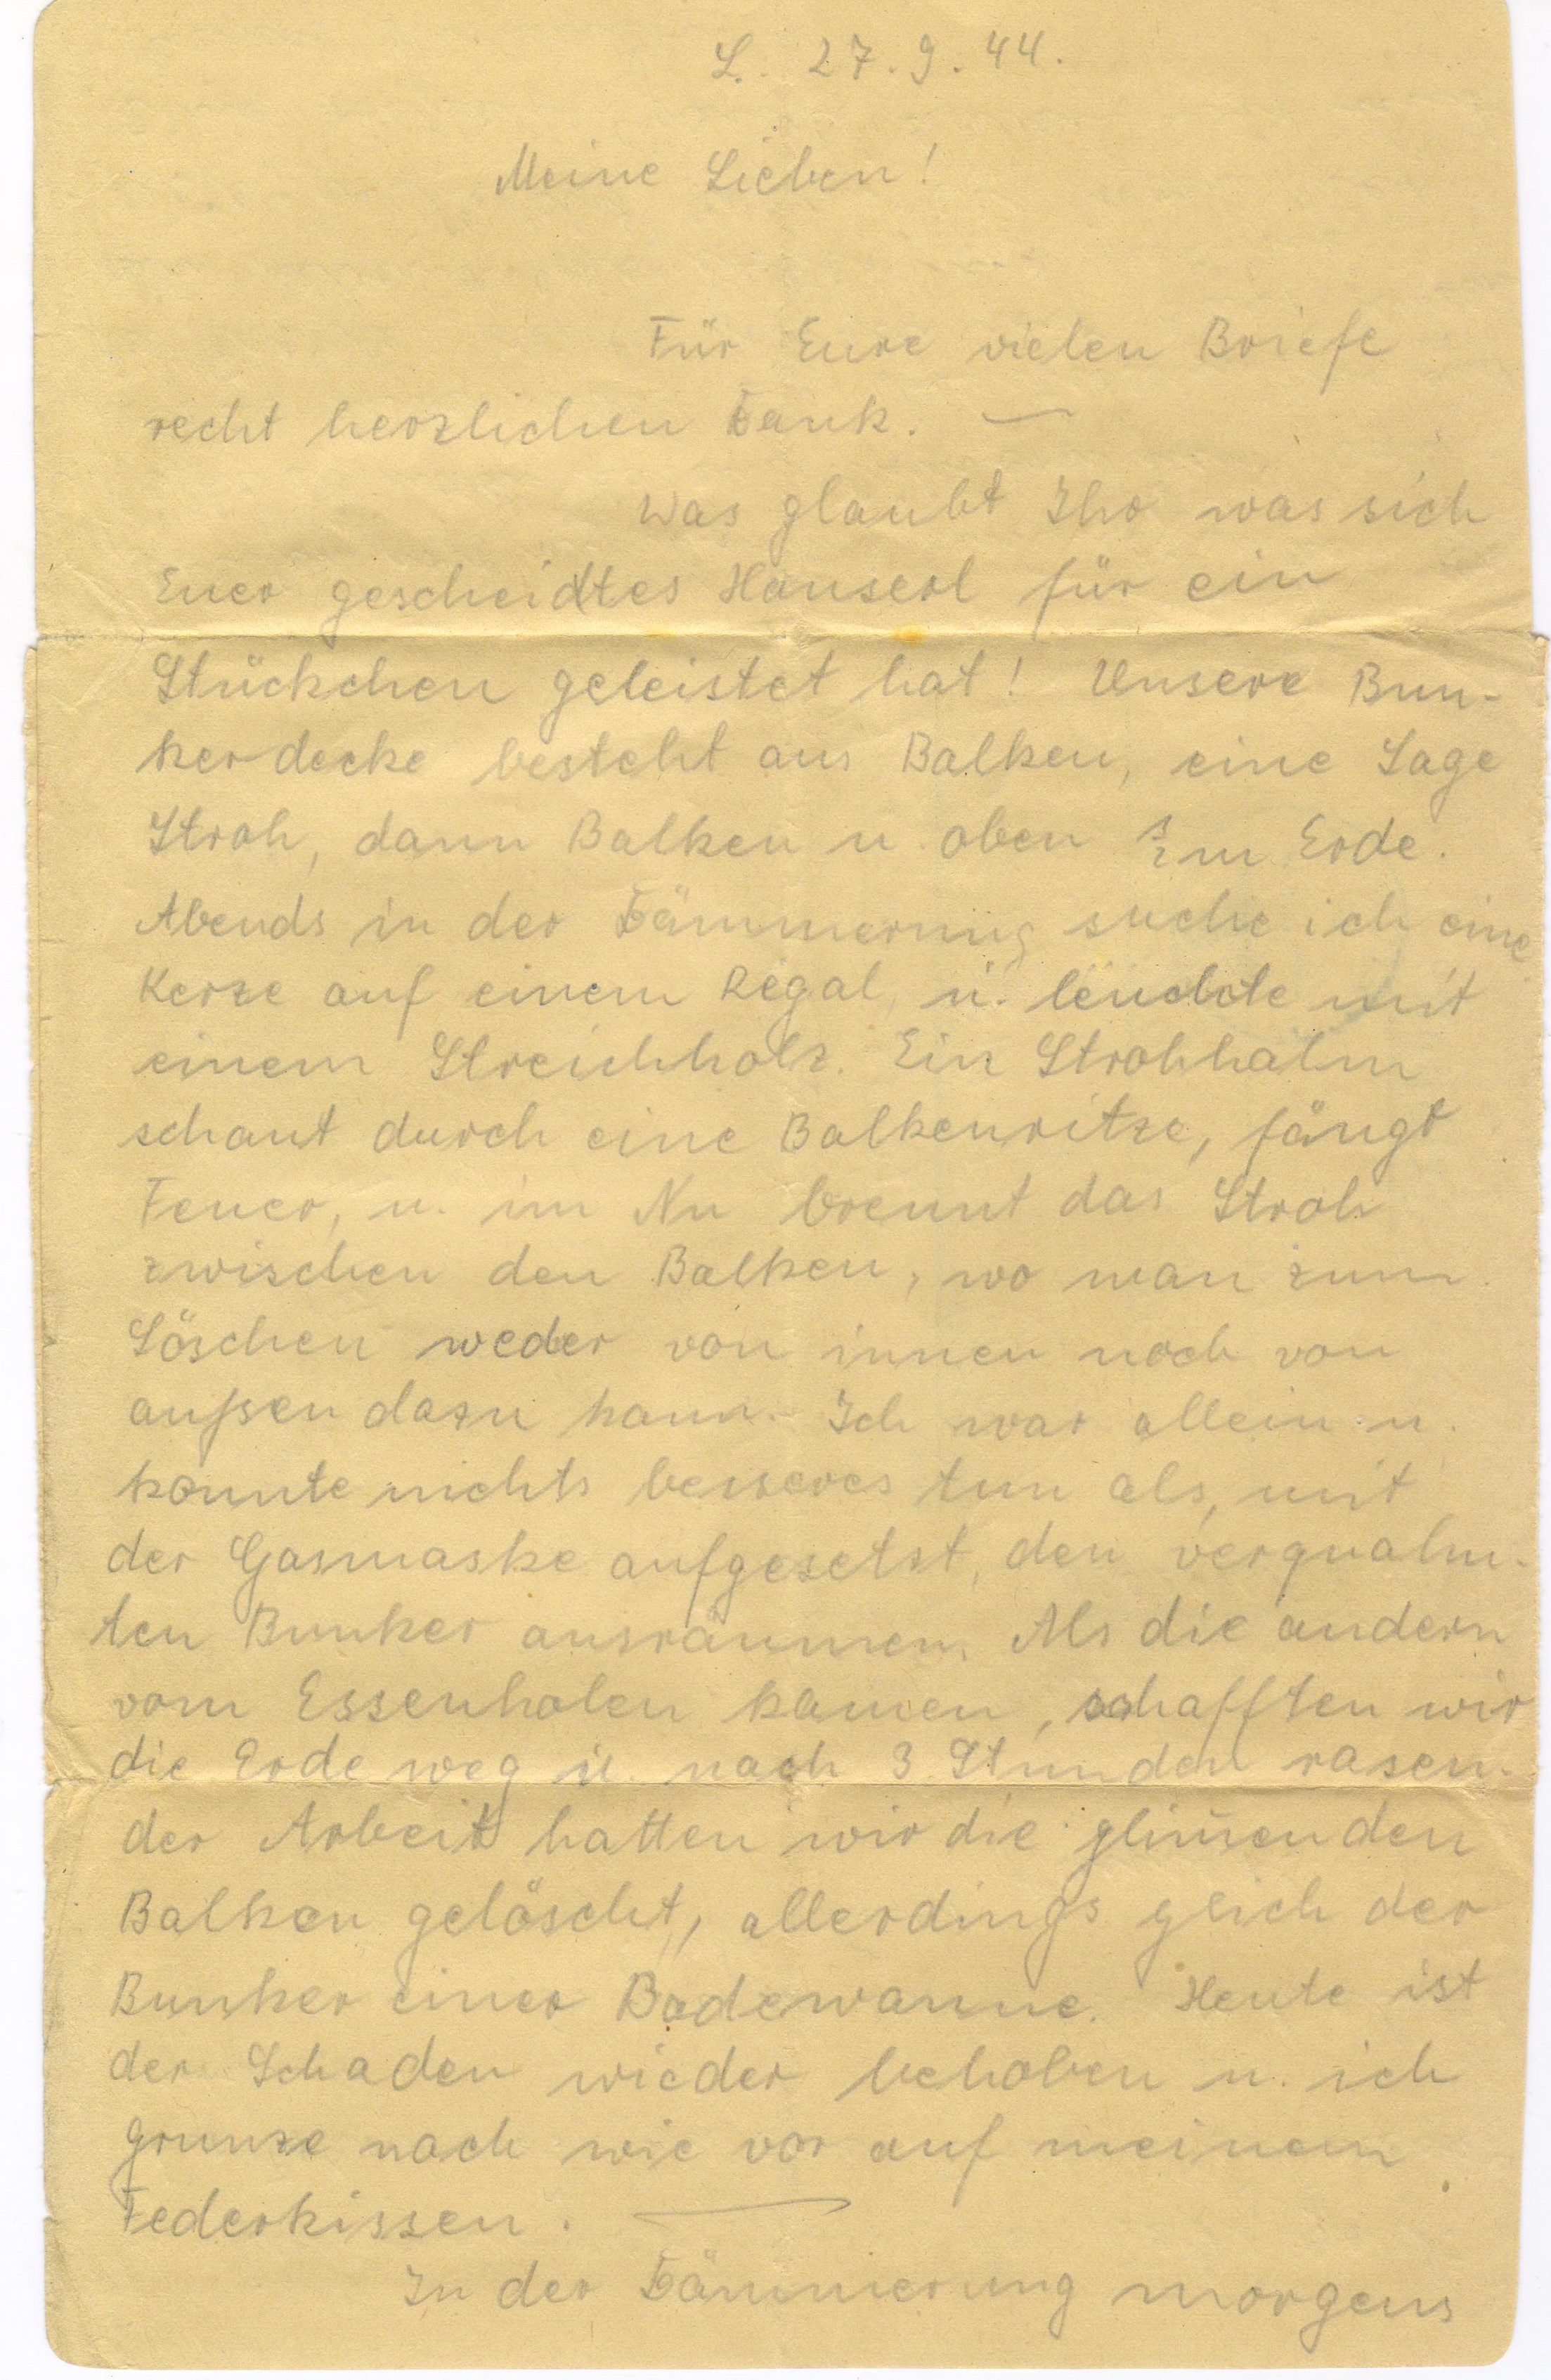 L. 27.9.44.
Meine Lieben!
Für Eure vielen Briefe
recht herzlichen Dank. —
Was glaubt Ihr was sich
Euer gescheidtes Hanserl für ein
Stückchen geleistet hat! Unsere Bun-
kerdecke besteht aus Balken, eine Lage
Stroh, dann Balken u. oben ½ m Erde.
Abends in der Dämmerung suche ich eine
Kerze auf einem Regal, u. leuchte mit
einem Streichholz. Ein Strohhalm
schaut durch eine Balkenritze, fängt
Feuer, u. im Nu brennt das Stroh
zwischen den Balken, wo man zum
Löschen weder von innen noch von
außen dazu kann. Ich war allein u.
konnte nichts besseres tun als, mit
der Gasmaske aufgesetzt, den verqualm-
ten Bunker ausräumen. Als die andern
vom Essenholen kamen, schafften wir
die Erde weg u. nach 3 Stunden rasen-
der Arbeit hatten wir die glim̅enden
Balken gelöscht, allerdings glich der
Bunker einer Badewanne. Heute ist
der Schaden wieder behoben u. ich
grunze nach wie vor auf meinem
Federkissen. —
In der Dämmerung morgens